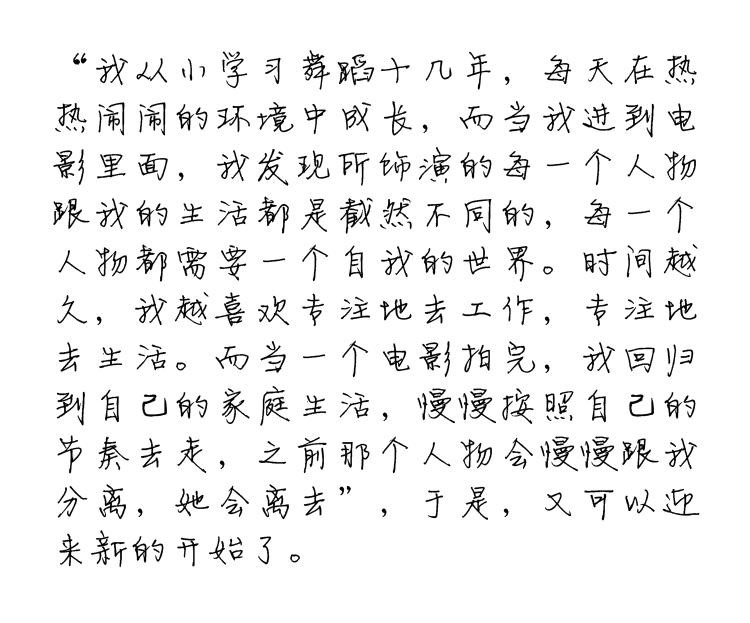 “我从小学习舞蹈十几年，每天在热
热闹闹的环境中成长，而当我进到电
影里面，我发现所饰演的每一个人物
跟我的生活都是截然不同的，每一个
人物都需要一个自我的世界。时间越
久，我越喜欢专注地去工作，专注地
去生活。而当一个电影拍完，我回归
到自己的家庭生活，慢慢按照自己的
节奏去走，之前那个人物会慢慢跟我
分离，她会离去”，于是，又可以迎
来新的开始了。